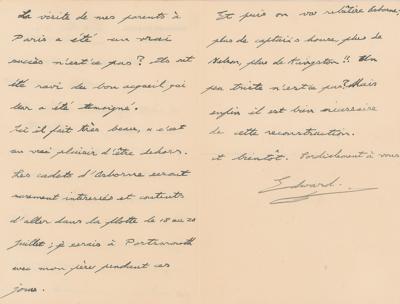 La visite de mes parents à
Paris a été un vrai
succès n'est-ce pas? Ils ont
été ravi du bon accueil qui
leur a été temoigné.
Ici il fait très beau, & c'est
un vrai plaisir d'être dehors.
Les cadets d'Osborne seront
surement intéressés et contents
d'aller dans la flotte le 18 au 20
juillet; je serais à Portsmouth
avec mon père pendant ces
jours.
Et puis on va
Osborne,
plus de captain's house, plus de
Nelson, plus de Kingston!! Un
peu triste n'est-ce pas? Mais
enfin il est bien nécessaire
de cette reconstruction.
et bientôt. Cordialement à vous
Edward.